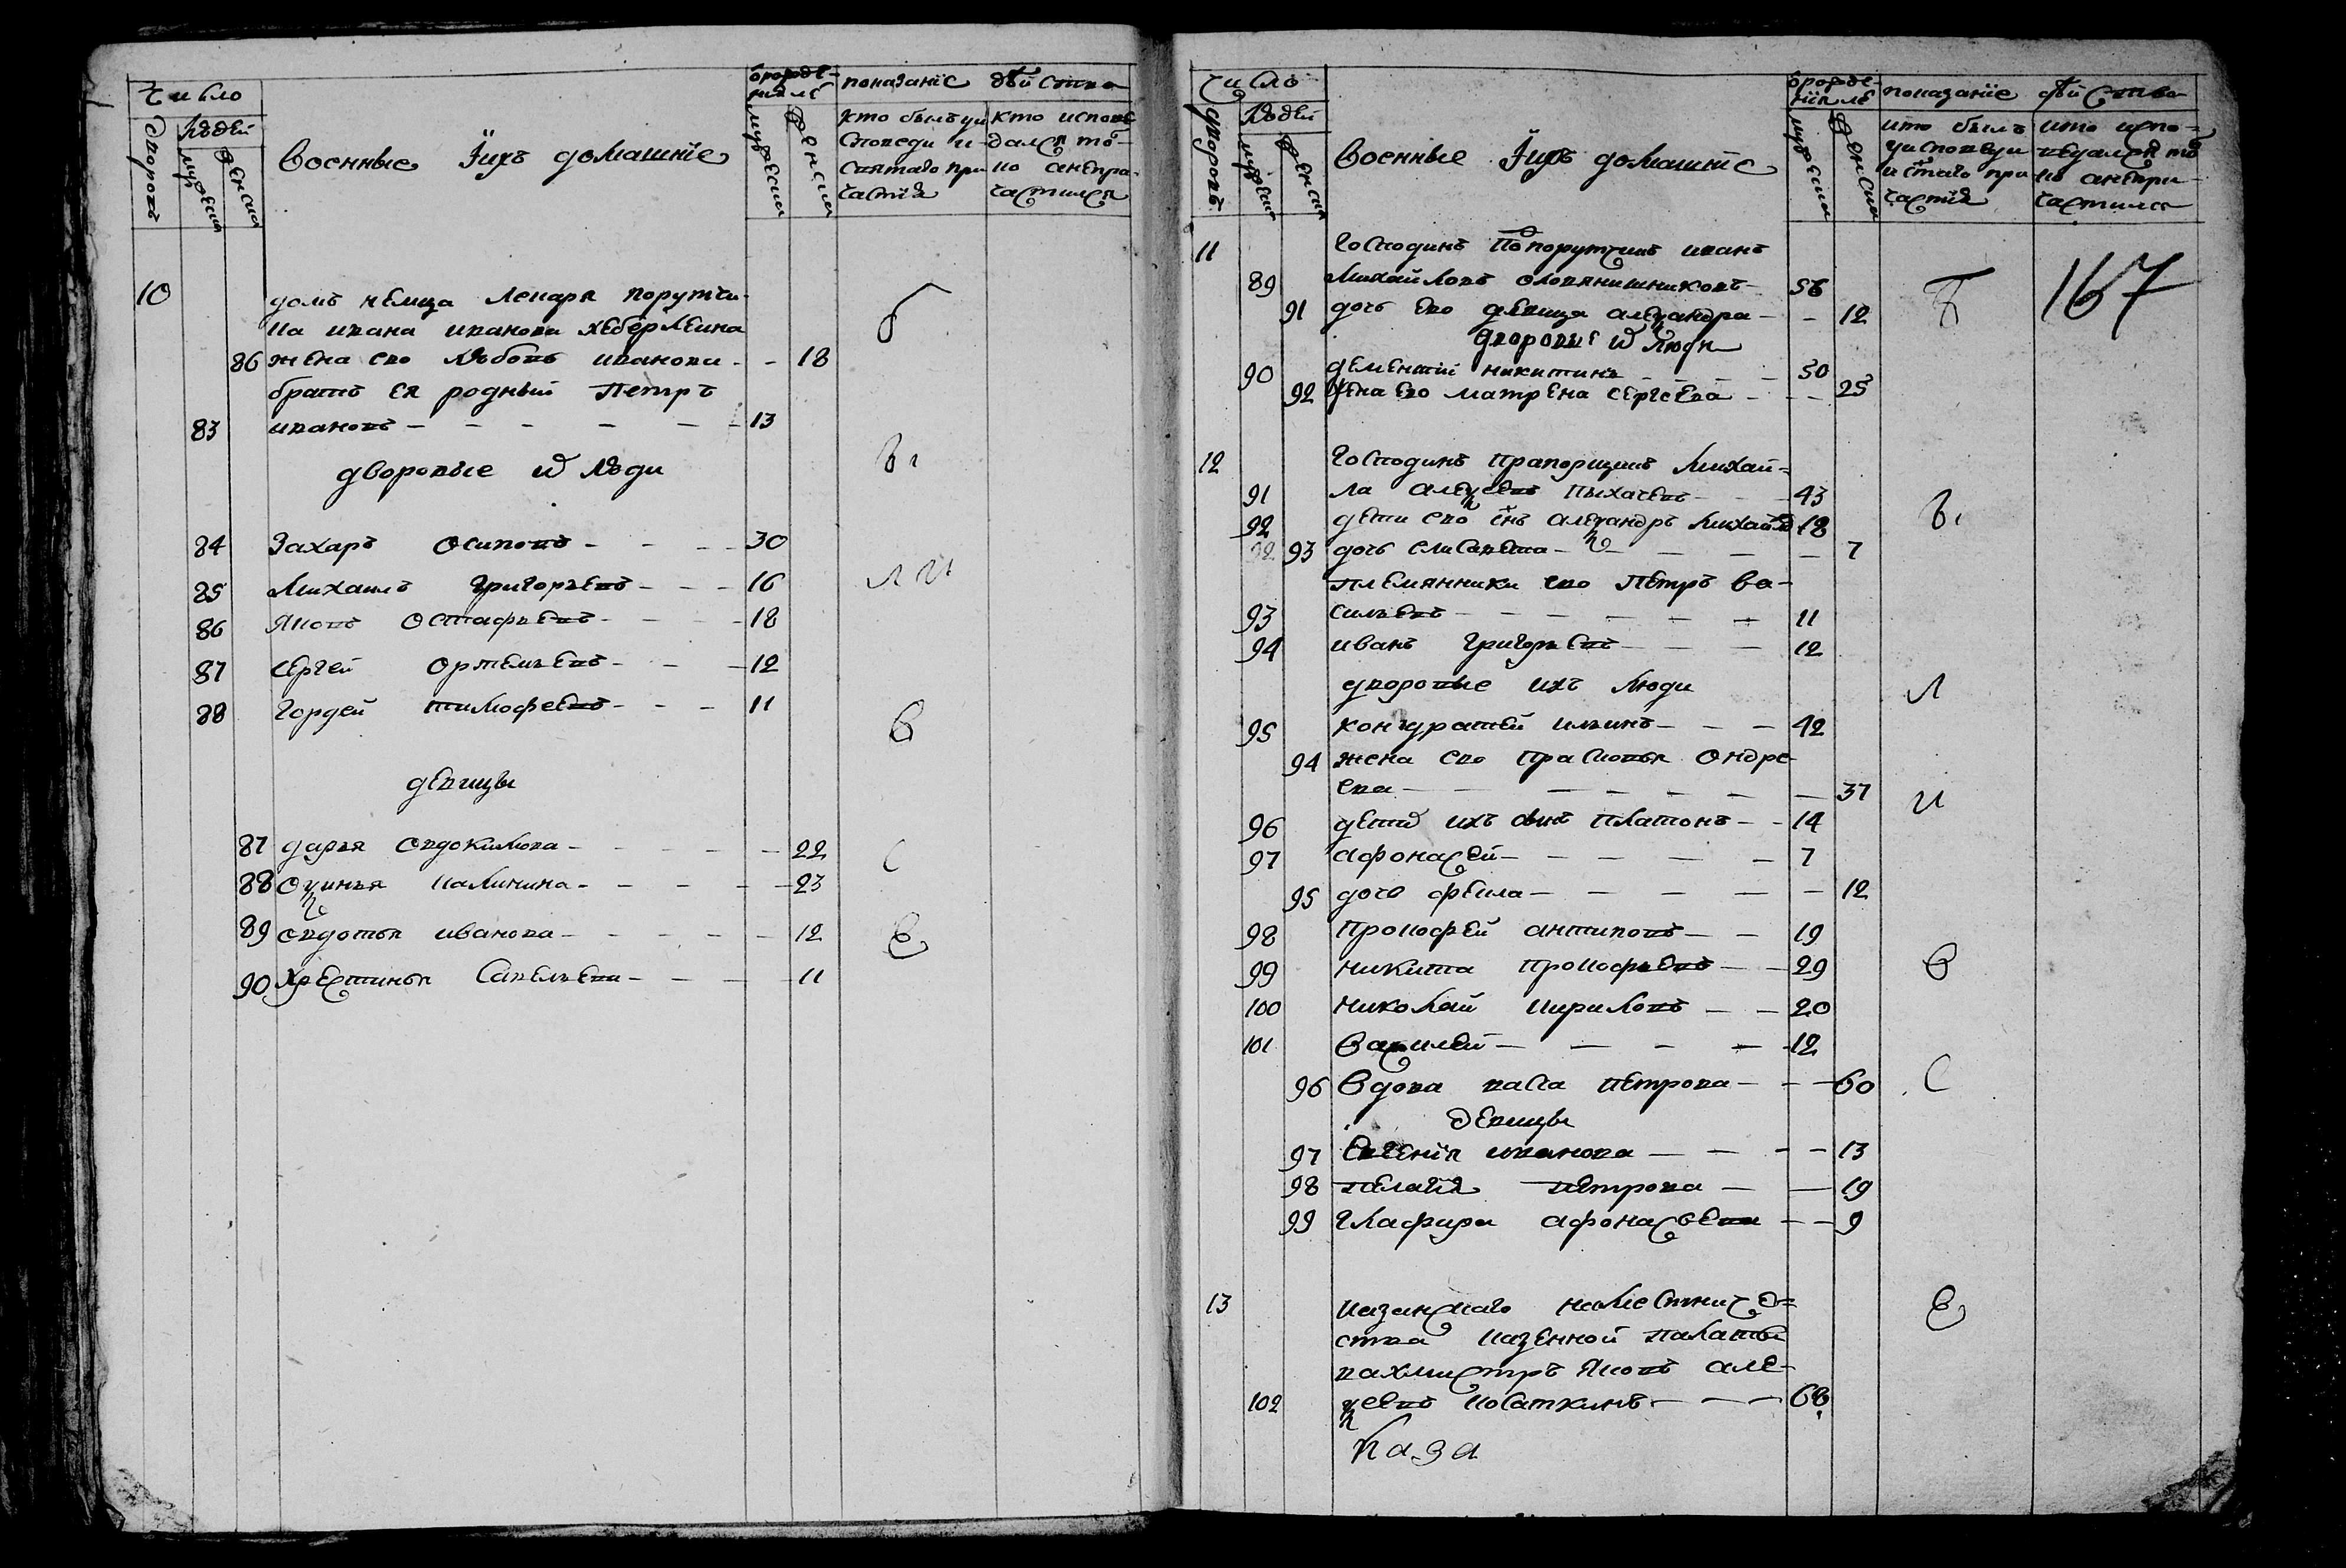 Число
дворовъ
людей
мужеска
женска
Военные и ихъ домашнїе
о рожде-
нїи летъ
мужеска
женска
показанїе действа
кто былъ у и
споведи и
святаго при
частїя
кто испове
дался то-
ко а непри-
частился
10 домъ немца лекаря порутчи-
ка ивана иванова
86 жена ево любовь иванова - - 18
братъ ея родный Петръ
83 ивановъ - - - - - 13
дворовые и люди
84 Захаръ осиповъ - - - 30
85 Михаилъ григорьевъ - - - 16
86 Яковъ Остафьевъ - - - 18
87 Сергей ортемьевъ - - - 12
88 Гордей тимофеевъ - - - 11
девицы
87 дарья евдокимова - - - - 22
88 оксинья калинина - - - - 23
89 евдотья иванова - - - - 12
90 Хрестинья Савельева - - - 11
б
в
л и
в
с
е
Число
дворовъ
людей
мужеска
женска
Военные и ихъ домашнїе
о рожде-
нїи летъ
мужеска
женска
показанїе действа
кто былъ
у исповеди
и стаго при
частїя
кто испо-
ведался то
ко а непри-
частился
167
11 Господинъ Подпорутчикъ иванъ
89 Михайловъ оловянишниковъ - 56
91 дочь ево девица александра - - 12
дворовые и люди
90 дементїй никитинъ - - - 50
92 жена ево матрена сергеева - - - 25
12 Господинъ Прапорщикъ Михай-
91 ла алексеевъ пыхачевъ - - - 43
92 дети ево снъ александръ Михайло 18
93 дочь елисавета - - - - - 7
племянники ево Петръ ва-
93 сильевъ - - - - - - 11
94 иванъ григорьевъ - - - 12
дворовые ихъ люди
95 кондратей ильинъ - - - 42
94 жена ево прасковья Ондре-
ева - - - - - - - 37
96 дети ихъ сынъ платонъ - - 14
97 афонасей - - - - - 7
95 дочь фекла - - - - - - 12
98 Прокофей антиповъ - - 19
99 никита прокофьевъ - - 29
100 николай кириловъ - - 20
101 Василей - - - - 12
96 Вдова васа петрова - - - 60
девицы
97 Евгенїя иванова - - - - 13
98 пелагїя петрова - - 19
99 глафира афонасьева - - 9
13 казанскаго наместниче=
ства казенной палаты
вахмистръ Яковъ але-
102 ксеевъ косаткинъ - - - 68
каза
б
в
л
и
в
с
е